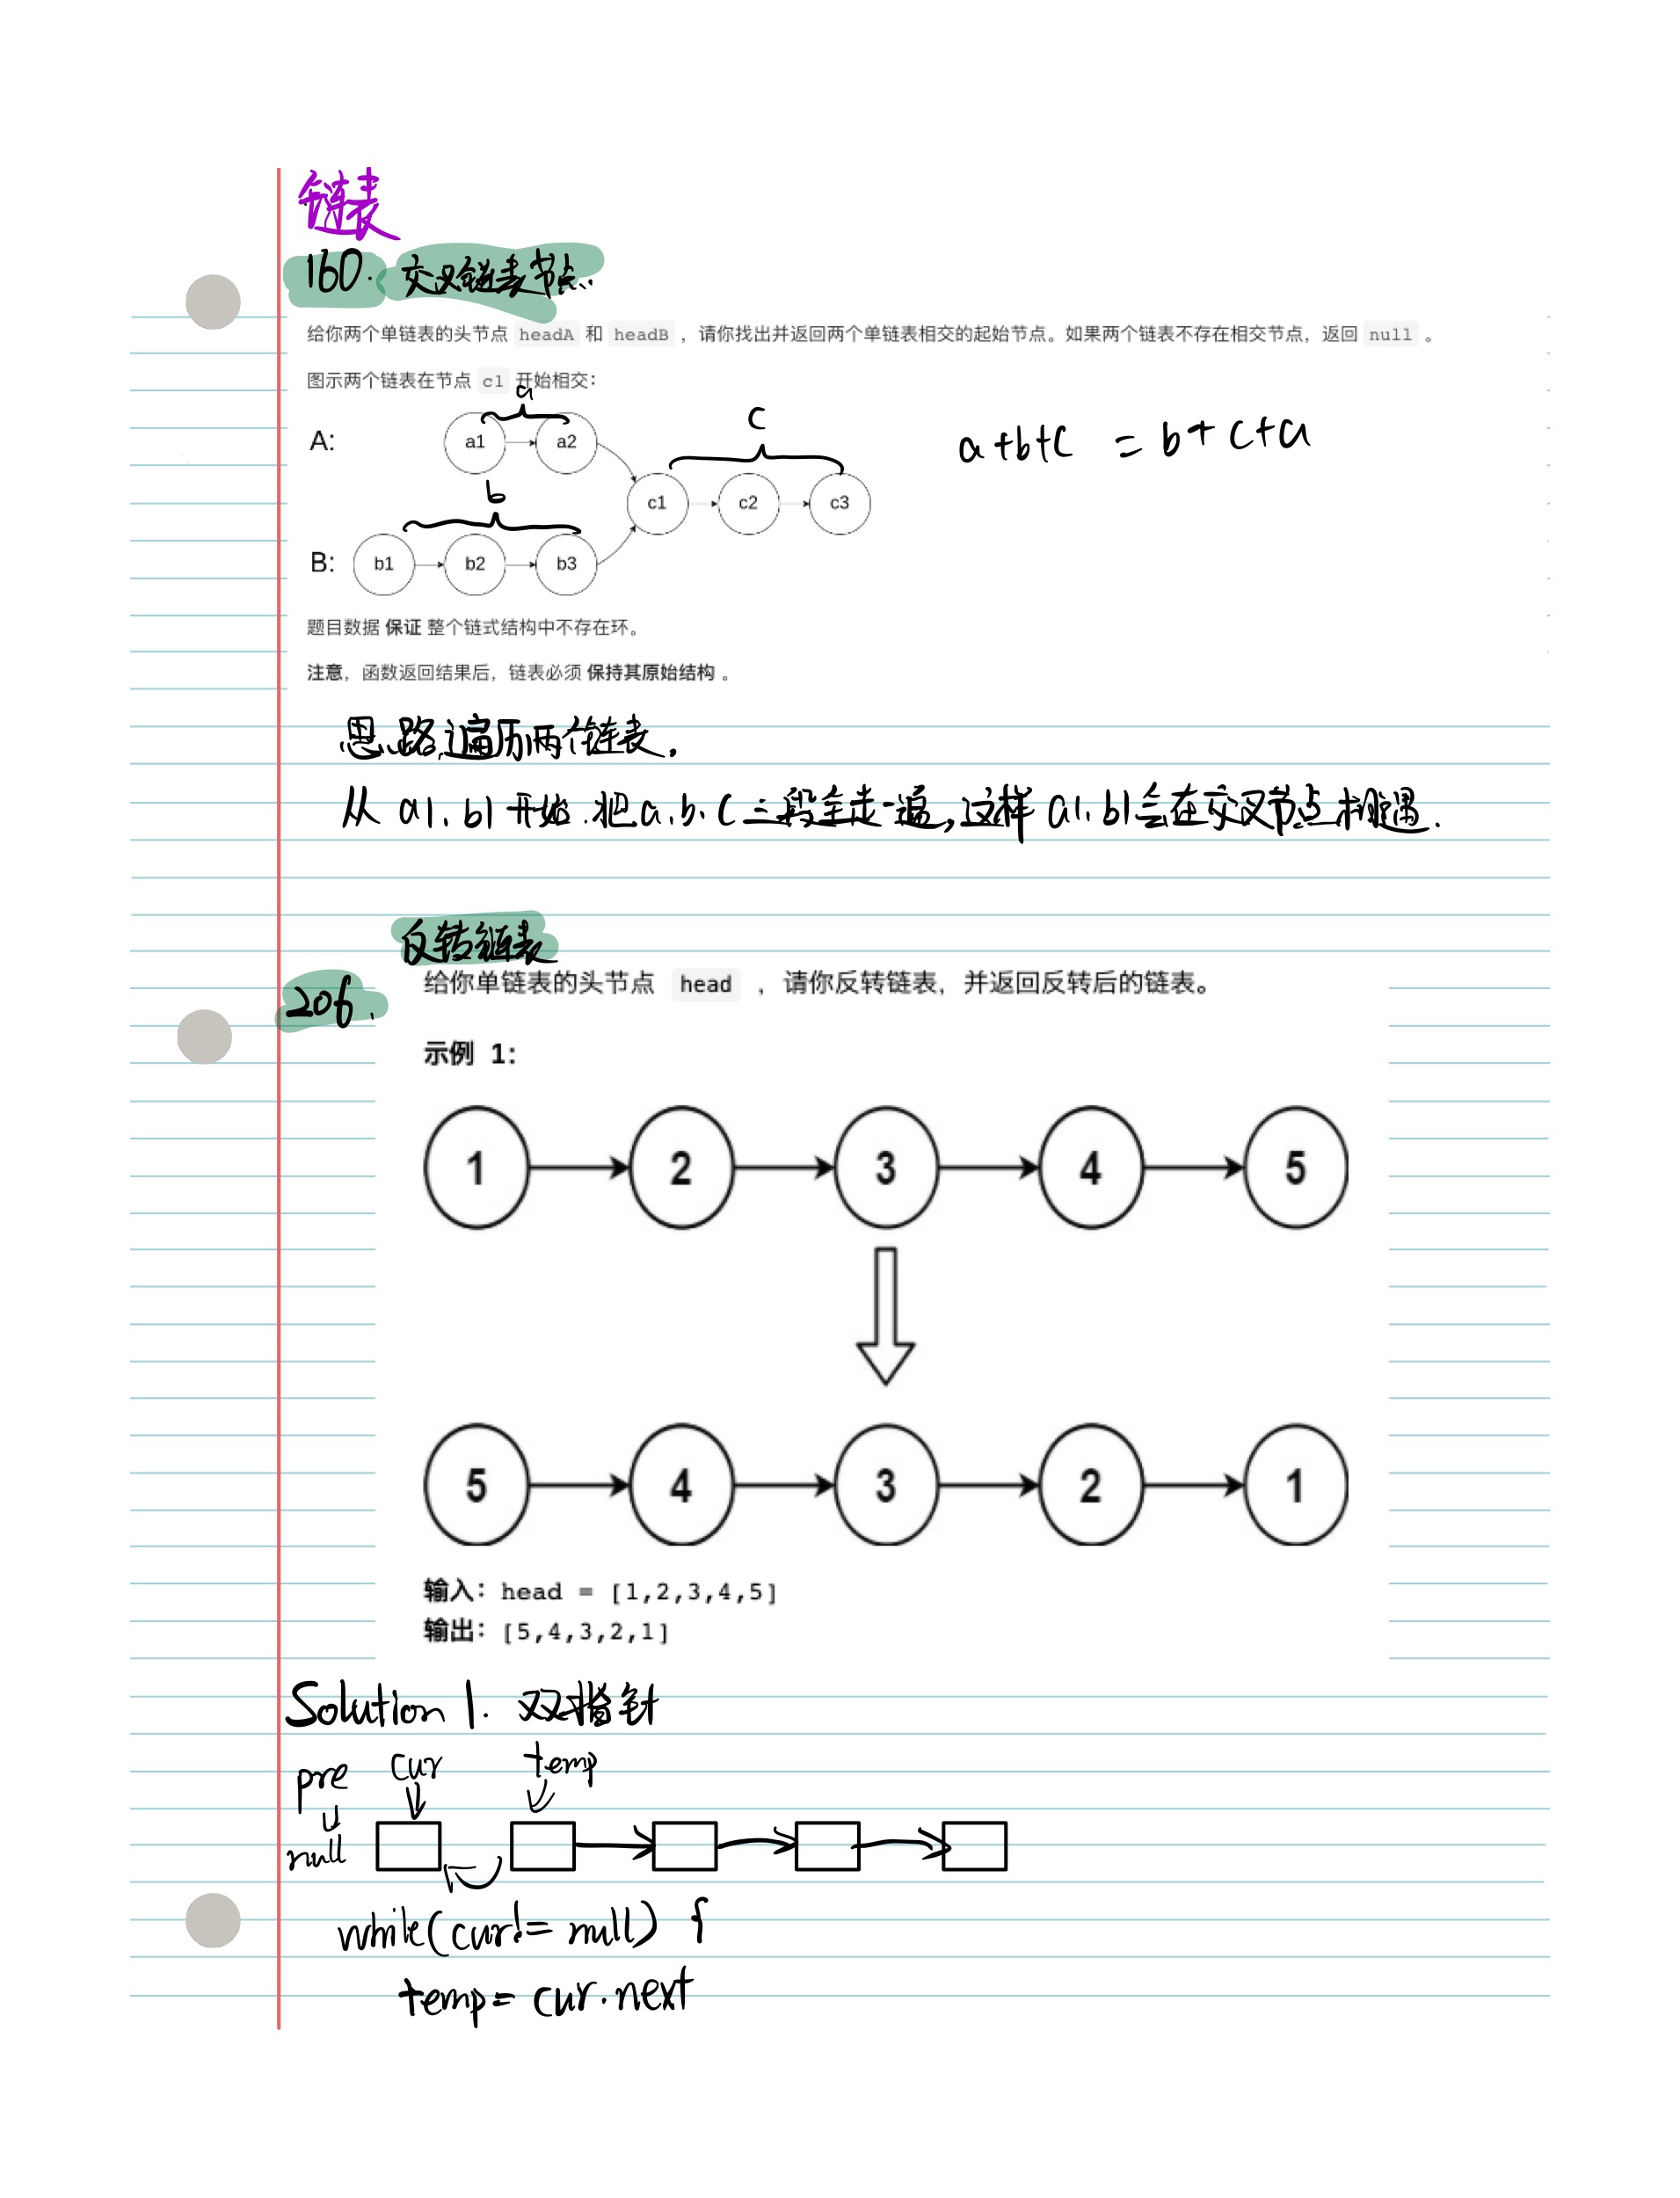 链表
160. 交叉链表节点.
给你两个单链表的头节点 headA 和 headB ，请你找出并返回两个单链表相交的起始节点。如果两个链表不存在相交节点，返回 null 。
图示两个链表在节点 c1 开始相交：
a
c
A: a1 a2
a+b+c = b+c+a
b
c1 c2 c3
B: b1 b2 b3
题目数据 保证 整个链式结构中不存在环。
注意，函数返回结果后，链表必须 保持其原始结构 。
思路,遍历两个链表.
从 a1. b1 开始.把a.b.c三段全走一遍,这样 a1. b1会在交叉节点相遇.
反转链表
206.
给你单链表的头节点 head ，请你反转链表，并返回反转后的链表。
示例 1：
1 2 3 4 5
5 4 3 2 1
输入：head = [1,2,3,4,5]
输出：[5,4,3,2,1]
Solution 1. 双指针
pre cur temp
null
while(cur!= null) {
temp= cur.next